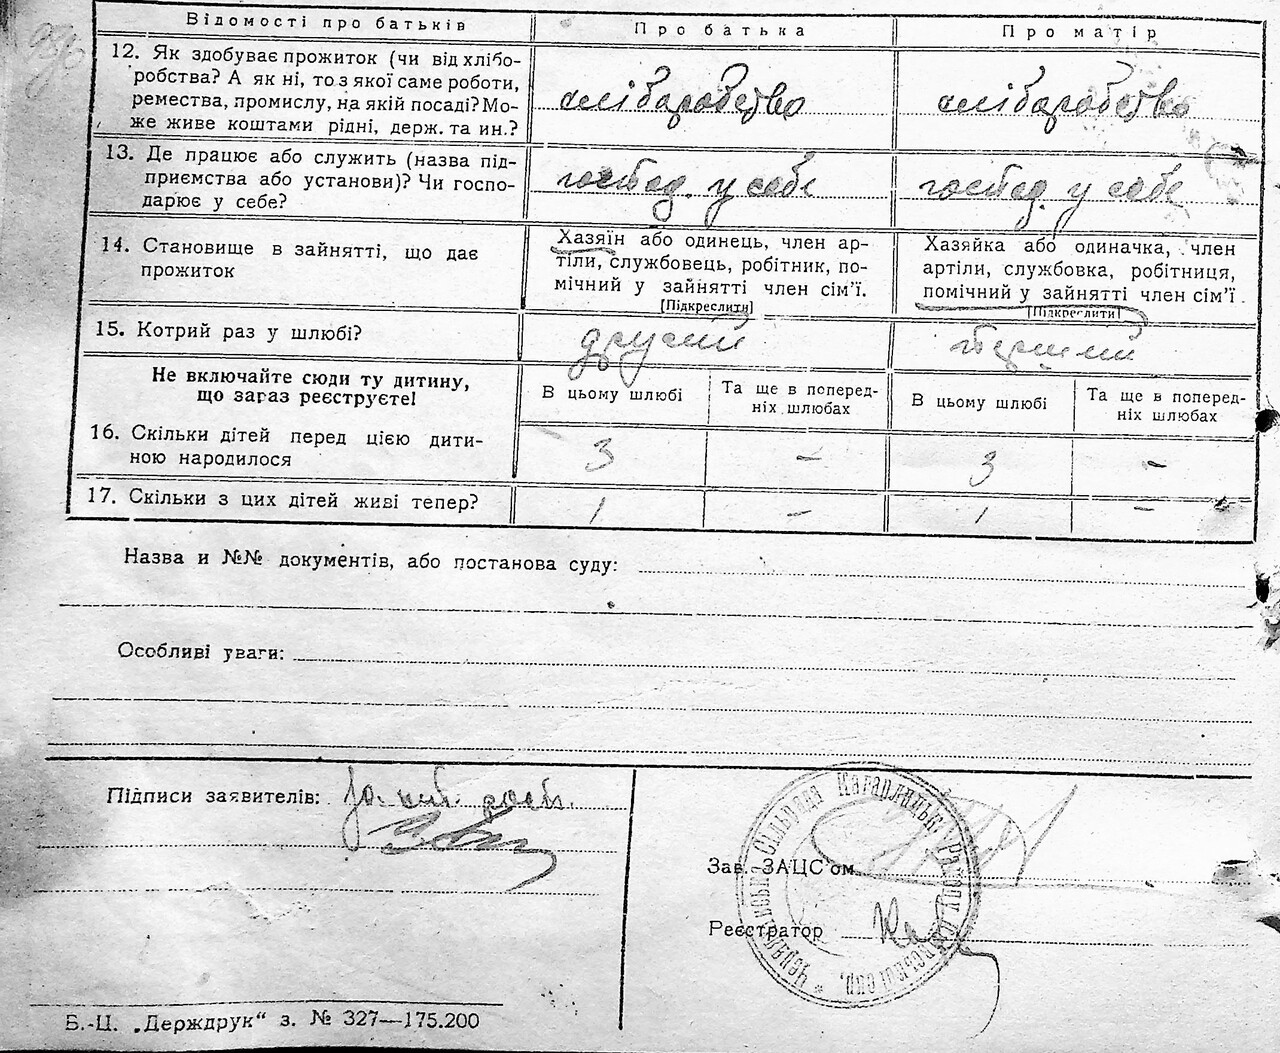 Відомості про батьків Про батька Про матір
12. Як здобуває прожиток (чи від хлібо-
робства? А як ні, то з якої саме роботи,
ремества, промислу, на якій посаді? Мо-
же живе коштами рідні, держ. та ин.?
хліборобство хліборобство
13. Де працює або служить (назва під-
приємства або установи)? Чи госпо-
дарює у себе?
господ. у себе господ. у себе
14. Становище в зайнятті, що дає
прожиток
Хазяїн або одинець, член ар-
тіли, службовець, робітник, по-
мічний у зайнятті член сім'ї.
[Підкреслити]
Хазяйка або одиначка, член
артіли, службовка, робітниця,
помічний у зайнятті член сім'ї.
[Підкреслити]
15. Котрий раз у шлюбі? другий перший
Не включайте сюди ту дитину,
що зараз реєструєте!
В цьому шлюбі
Та ще в поперед-
ніх шлюбах
В цьому шлюбі
Та ще в поперед-
ніх шлюбах
16. Скільки дітей перед цією дити-
ною народилося
3 - 3 -
17. Скільки з цих дітей живі тепер? 1 - 1 -
Назва и №№ документів, або постанова суду:
Особливі уваги:
Підписи заявителів:
Зав. ЗАЦС'ом
Реєстратор
Сільрада Кагарлицьк. Району
Б.-Ц. „Держдрук“ з. № 327—175.200